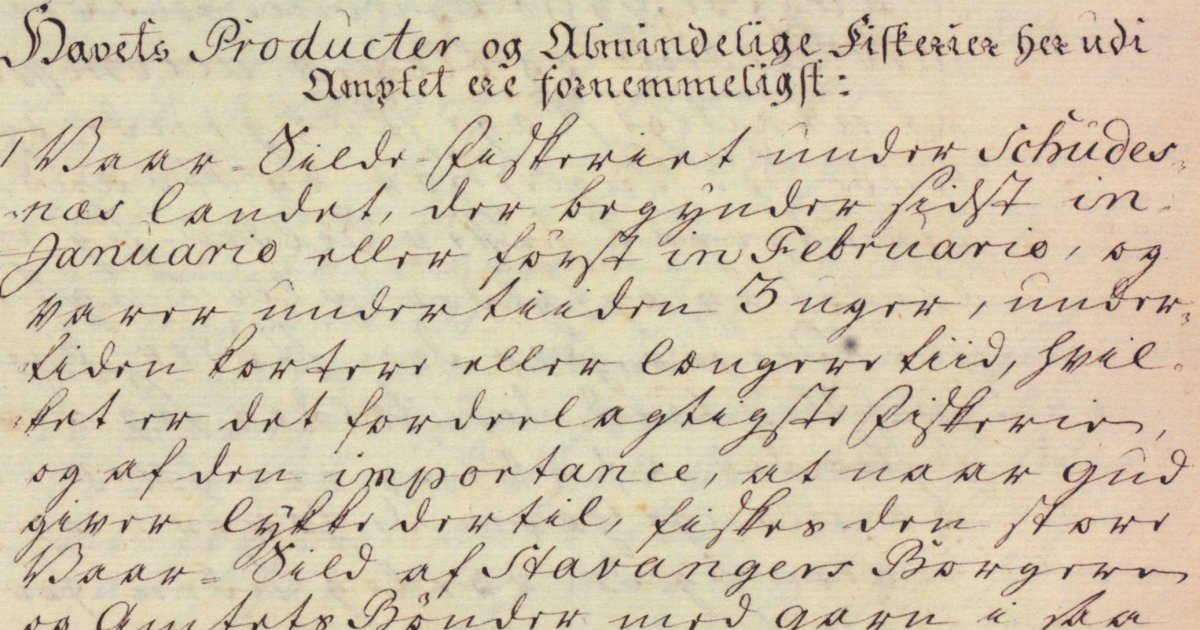 Havets Producter og Almindelige Fiskerier her udi
Amptet ere fornemmeligst:
1 Vaar-Silde-Fiskeriet under Schudes-
næs landet, der begynder sidst in
Januario eller först in Februario, og
varer undertiiden 3 uger, under-
tiden kortere eller længere tiid, hvil-
ket er det fordeelagtigste Fiskerie,
og af den importance, at naar Gud
giver lykke dertil, fiskes den store
Vaar-Sild af Stavangers Borgere
og Amtets Bönder med garn i saa